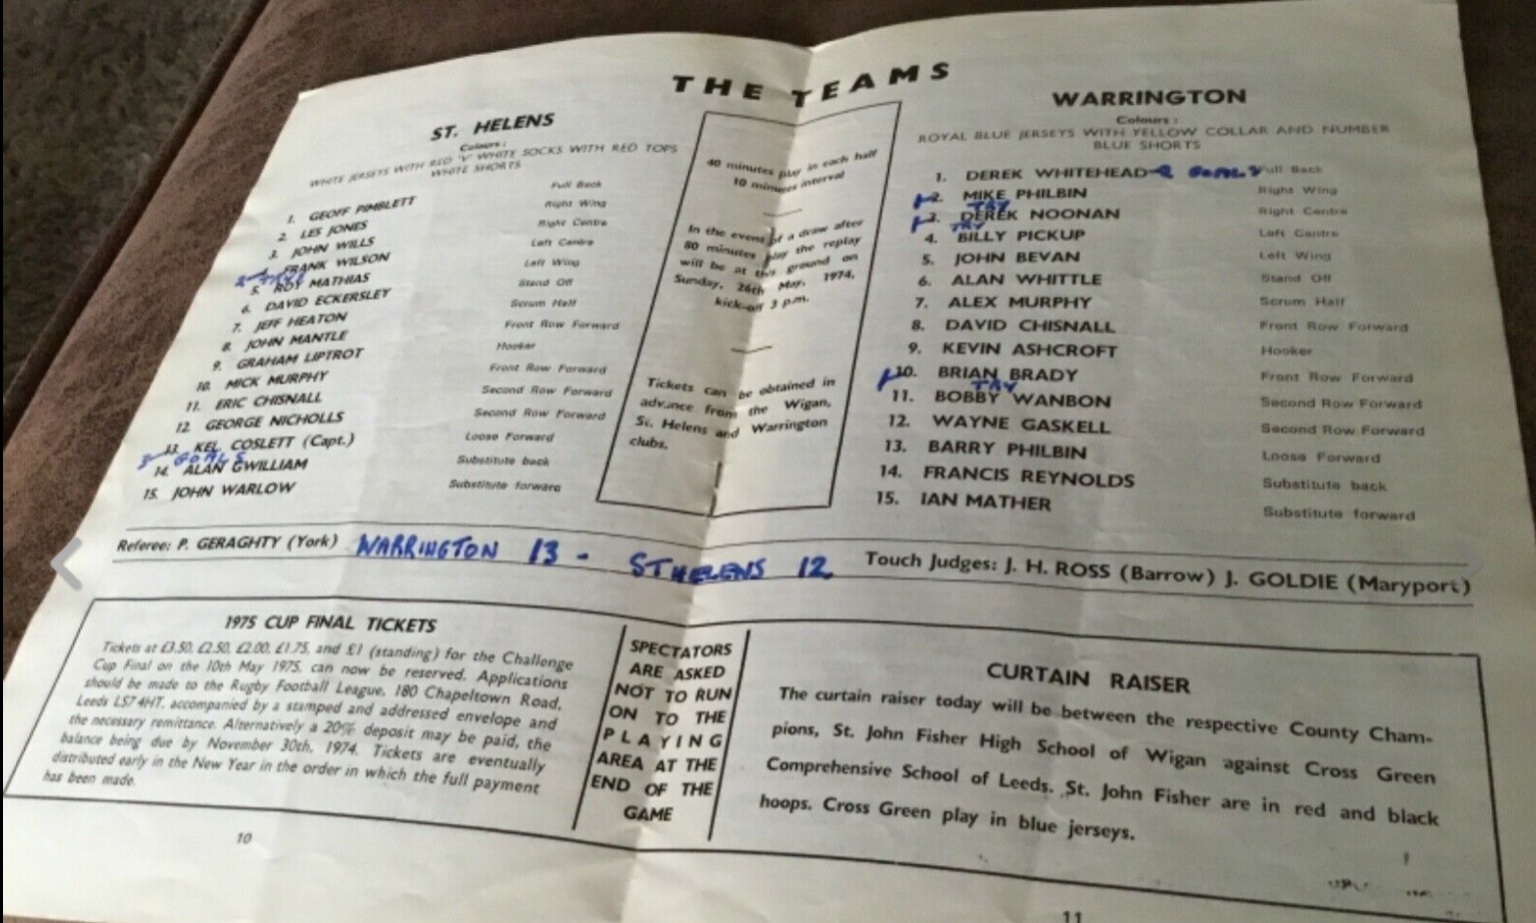 THE TEAMS
ST. HELENS
Colours :
WHITE JERSEYS WITH RED 'V' WHITE SOCKS WITH RED TOPS
WHITE SHORTS
1. GEOFF PIMBLETT Full Back
2. LES JONES Right Wing
3. JOHN WILLS Right Centre
4. FRANK WILSON Left Centre
5. ROY MATHIAS Left Wing
6. DAVID ECKERSLEY Stand Off
7. JEFF HEATON Scrum Half
8. JOHN MANTLE Front Row Forward
9. GRAHAM LIPTROT Hooker
10. MICK MURPHY Front Row Forward
11. ERIC CHISNALL Second Row Forward
12. GEORGE NICHOLLS Second Row Forward
13. KEL COSLETT (Capt.) Loose Forward
3 GOALS
14. ALAN GWILLIAM Substitute back
15. JOHN WARLOW Substitute forward
40 minutes play in each half
10 minutes interval
In the event of a draw after
80 minutes play the replay
will be at this ground on
Sunday, 26th May, 1974,
kick-off 3 p.m.
Tickets can be obtained in
advance from the Wigan,
St. Helens and Warrington
clubs.
WARRINGTON
Colours :
ROYAL BLUE JERSEYS WITH YELLOW COLLAR AND NUMBER
BLUE SHORTS
1. DEREK WHITEHEAD 2 GOALS Full Back
2. MIKE PHILBIN Right Wing
TRY
3. DEREK NOONAN Right Centre
TRY
4. BILLY PICKUP Left Centre
5. JOHN BEVAN Left Wing
6. ALAN WHITTLE Stand Off
7. ALEX MURPHY Scrum Half
8. DAVID CHISNALL Front Row Forward
9. KEVIN ASHCROFT Hooker
10. BRIAN BRADY Front Row Forward
TRY
11. BOBBY WANBON Second Row Forward
12. WAYNE GASKELL Second Row Forward
13. BARRY PHILBIN Loose Forward
14. FRANCIS REYNOLDS Substitute back
15. IAN MATHER Substitute forward
Referee: P. GERAGHTY (York) WARRINGTON 13 - ST HELENS 12 Touch Judges: J. H. ROSS (Barrow) J. GOLDIE (Maryport)
1975 CUP FINAL TICKETS
Tickets at £3.50, £2.50, £2.00, £1.75, and £1 (standing) for the Challenge
Cup Final on the 10th May 1975, can now be reserved. Applications
should be made to the Rugby Football League, 180 Chapeltown Road,
Leeds LS7 4HT, accompanied by a stamped and addressed envelope and
the necessary remittance. Alternatively a 20% deposit may be paid, the
balance being due by November 30th, 1974. Tickets are eventually
distributed early in the New Year in the order in which the full payment
has been made.
SPECTATORS
ARE ASKED
NOT TO RUN
ON TO THE
PLAYING
AREA AT THE
END OF THE
GAME
CURTAIN RAISER
The curtain raiser today will be between the respective County Cham-
pions, St. John Fisher High School of Wigan against Cross Green
Comprehensive School of Leeds. St. John Fisher are in red and black
hoops. Cross Green play in blue jerseys.
10
11